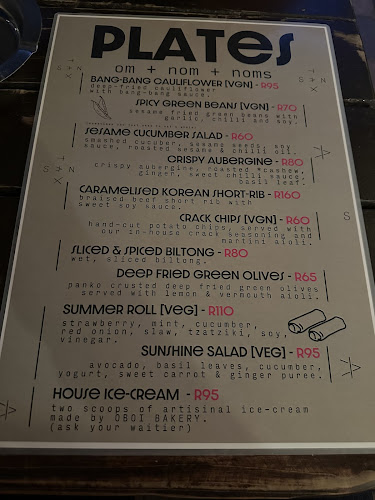 PLATES
om + nom + noms
BANG-BANG CAULIFLOWER [VGN] - R95
deep-fried cauliflower
with bang-bang sauce.
SPICY GREEN BEANS [VGN] - R70
sesame fried green beans with
garlic, chilli and soy.
SESAME CUCUMBER SALAD - R60
smashed cucumber, sesame seeds, soy
sauce, roasted sesame & chilli oil.
CRISPY AUBERGINE - R80
crispy aubergine, roasted *cashew,
ginger, sweet chilli sauce,
basil leaf.
CARAMELISED KOREAN SHORT-RIB - R160
braised beef short rib with
sweet soy sauce.
CRACK CHIPS [VGN] - R60
hand-cut potato chips, served with
our in-house crack seasoning and
martini aioli.
SLICED & SPICED BILTONG - R80
wet, sliced biltong.
DEEP FRIED GREEN OLIVES - R65
panko crusted deep fried green olives
served with lemon & vermouth aioli.
SUMMER ROLL [VEG] - R110
strawberry, mint, cucumber,
red onion, slaw, tzatziki, soy,
vinegar.
SUNSHINE SALAD [VEG] - R95
avocado, basil leaves, cucumber,
yogurt, sweet carrot & ginger puree.
HOUSE ICE-CREAM - R95
two scoops of artisinal ice-cream
made by OBOI BAKERY.
(ask your waitier)